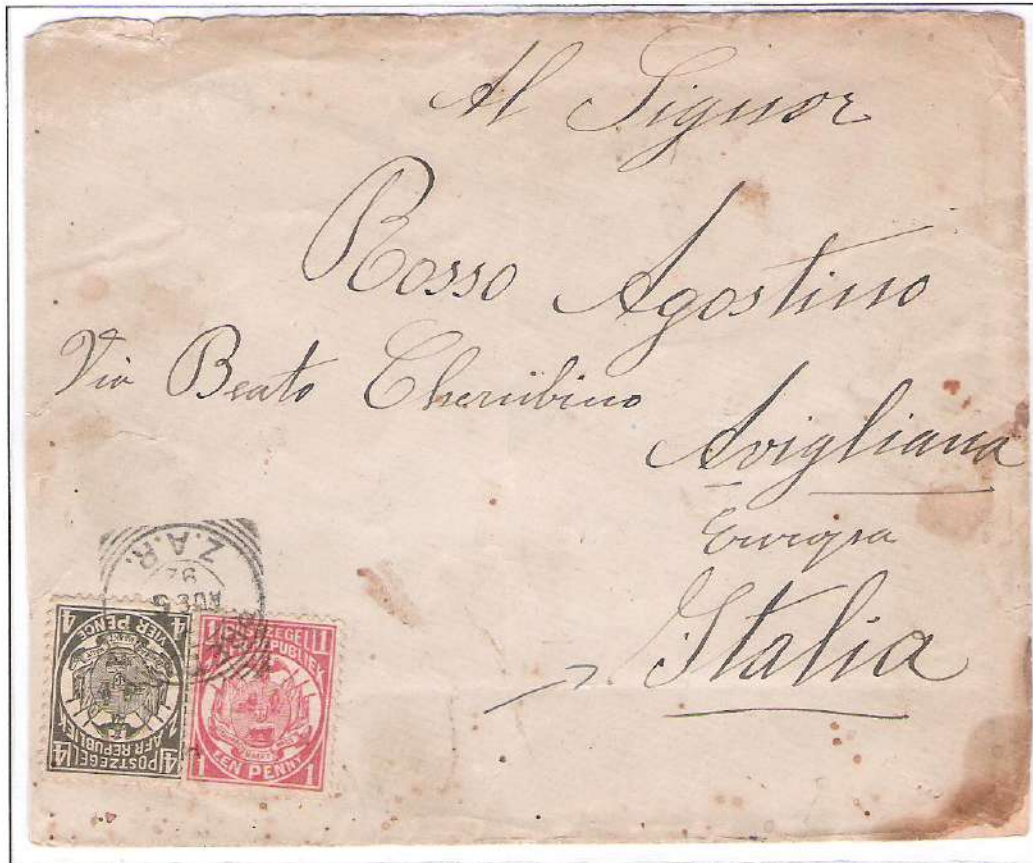 Al Signor
Rosso Agostino
Via Beato Cherubino
Avigliana
Europa
Italia
Z.A.R.
AUG 5
POSTZEGEL
AFR. REPUBLIEK
VIER PENCE
4 4
4 4
POSTZEGEL
REPUBLIEK
EEN PENNY
1 1
1 1